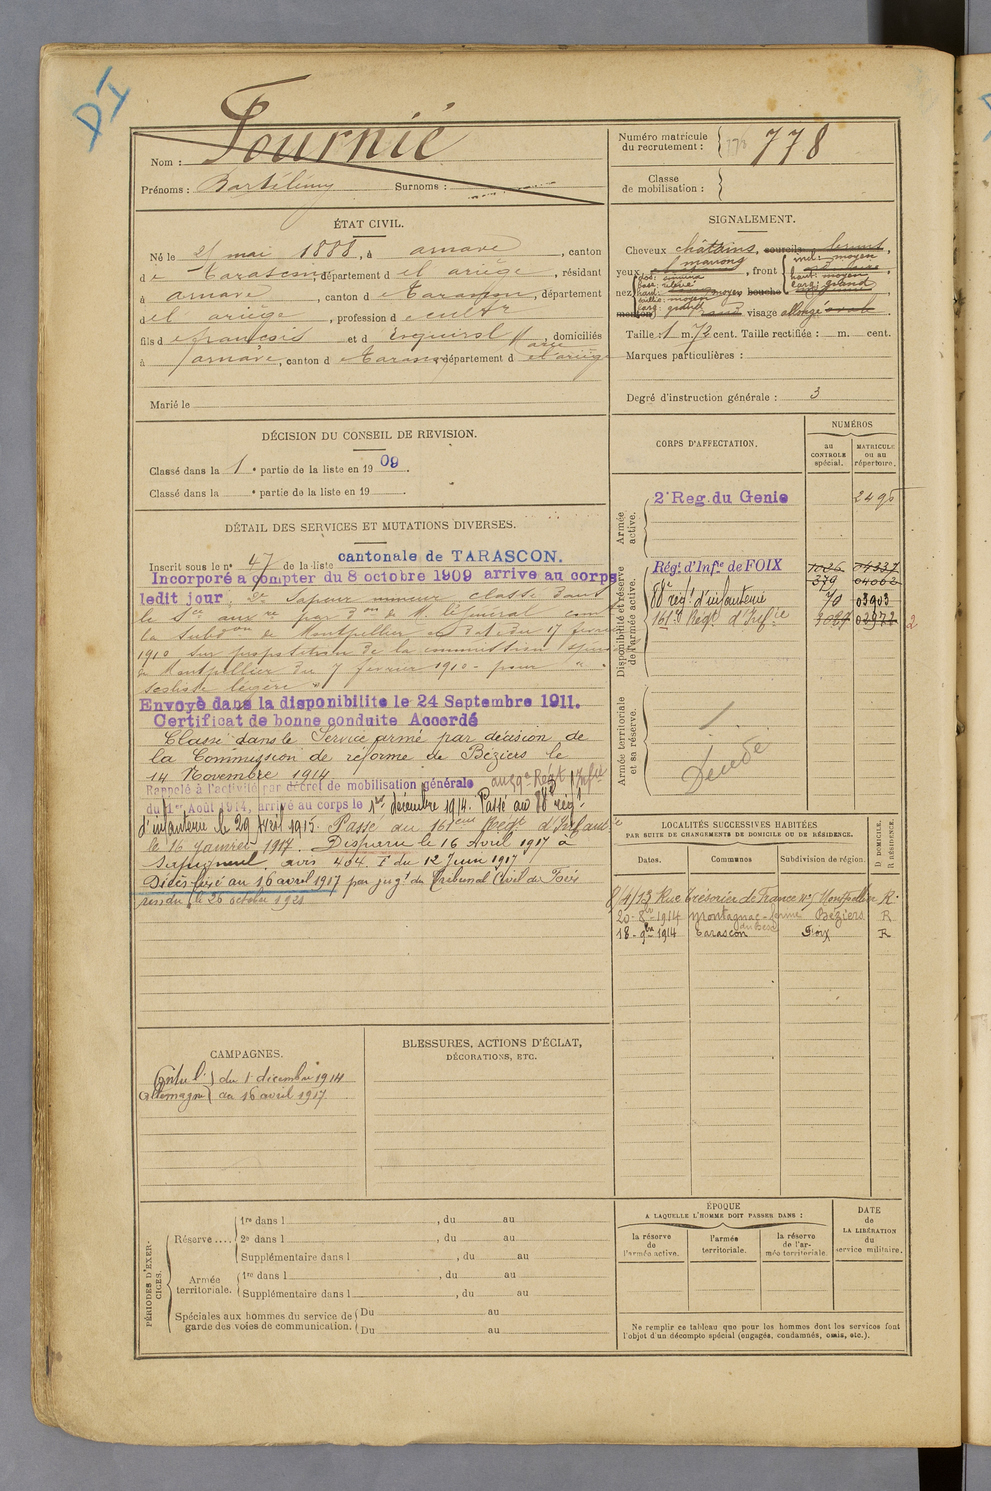 PI
Nom : Fournié
Prénoms : Bartélémy Surnoms :
Numéro matricule du recrutement : 778
Classe de mobilisation :
ÉTAT CIVIL.
Né le 21 mai 1888, à arnave, canton
de Tarascon, département del ariège, résidant
à arnave, canton de Tarascon, département
del ariège, profession de cultr
fils de françois et d' Esquirol, domiciliés
à arnave, canton de Tarascon département de l'ariège
Marié le
SIGNALEMENT.
Cheveux châtains, sourcils bruns,
yeux marrons, front incl: moyen
haut: moyen
larg: grand
nez dos:
base: relevé
haut: moyen bouche
saillie: moyen
larg: grand
menton visage allongé ovale
Taille : 1 m. 72 cent. Taille rectifiée : m. cent.
Marques particulières :
Degré d'instruction générale : 3
DÉCISION DU CONSEIL DE REVISION.
Classé dans la 1e partie de la liste en 1909.
Classé dans la e partie de la liste en 19 .
DÉTAIL DES SERVICES ET MUTATIONS DIVERSES.
Inscrit sous le n° 47 de la liste cantonale de TARASCON.
Incorporé a compter du 8 octobre 1909 arrive au corps
ledit jour. 2e Sapeur mineur classé dans
le Sce auxre par on de M. le Général comt
la Subdon de Montpellier en date du 17 février
1910 sur proposition de la commission
de Montpellier du 7 février 1910 - pour "
légère ".
Envoyé dans la disponibilite le 24 Septembre 1911.
Certificat de bonne conduite Accordé
Classé dans le Service armé par décision de
la Commission de réforme de Béziers le
14 Novembre 1914
Rappelé à l'activité par décret de mobilisation générale au 9e Régt Infie
du 1er Août 1914, arrivé au corps le 1er décembre 1914. Passé au 88e régt
d'infanterie le 29 avril 1915. Passé au 161eme Regt d'Infantie
le 16 janvier 1917. Disparu le 16 Avril 1917 à
Sapigneul avis 404. F du 12 Juin 1917
Décès fixé au 16 avril 1917 par jugt du Tribunal Civil de Foix
rendu le 26 octobre 1921
CORPS D'AFFECTATION.
NUMÉROS
au CONTROLE spécial.
MATRICULE ou au répertoire.
Armée active.
2e Reg. du Genie 2495
Disponibilité et réserve de l'armée active.
Régt d'Infie de FOIX 1026 04337
379 04062
88e régt d'infanterie 70 03903
161e Régt d'Infie 3087 02972 2
Armée territoriale et sa réserve.
LOCALITÉS SUCCESSIVES HABITÉES
PAR SUITE DE CHANGEMENTS DE DOMICILE OU DE RÉSIDENCE.
Dates. Communes Subdivision de région. D DOMICILE. R RÉSIDENCE.
8/4/13 Rue Trésorier de France n°7 Montpellier R.
20-8bre 1914 Montagnac - Béziers R
18-9bre 1914 Tarascon Foix R
CAMPAGNES.
Contre l' du 1 décembre 1914
Allemagne au 16 avril 1917
BLESSURES, ACTIONS D'ÉCLAT,
DÉCORATIONS, ETC.
PÉRIODES D'EXERCICES.
Réserve .... 1re dans l , du au
2e dans l , du au
Supplémentaire dans l , du au
Armée territoriale. 1re dans l , du au
Supplémentaire dans l , du au
Spéciales aux hommes du service de garde des voies de communication. Du au
Du au
ÉPOQUE
A LAQUELLE L'HOMME DOIT PASSER DANS :
la réserve de l'armée active.
l'armée territoriale.
la réserve de l'armée territoriale.
DATE de LA LIBÉRATION du service militaire.
Ne remplir ce tableau que pour les hommes dont les services font
l'objet d'un décompte spécial (engagés, condamnés, omis, etc.).